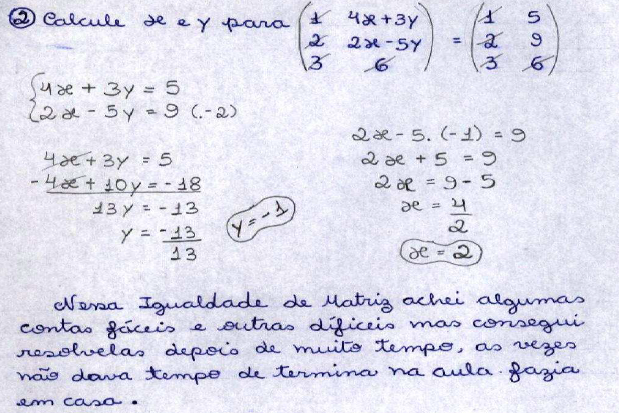 ② Calcule x e y para (1 4x+3y) = (1 5)
(2 2x-5y) (2 9)
(3 6) (3 6)
{4x + 3y = 5
{2x - 5y = 9 (.-2)
4x + 3y = 5
-4x + 10y = -18
13y = -13
y = -13
13
y = -1
2x - 5.(-1) = 9
2x + 5 = 9
2x = 9 - 5
x = 4
2
x = 2
Nessa Igualdade de Matriz achei algumas
contas fáceis e outras difíceis mas consegui
resolvelas depois de muito tempo, as vezes
não dava tempo de termina na aula fazia
em casa.